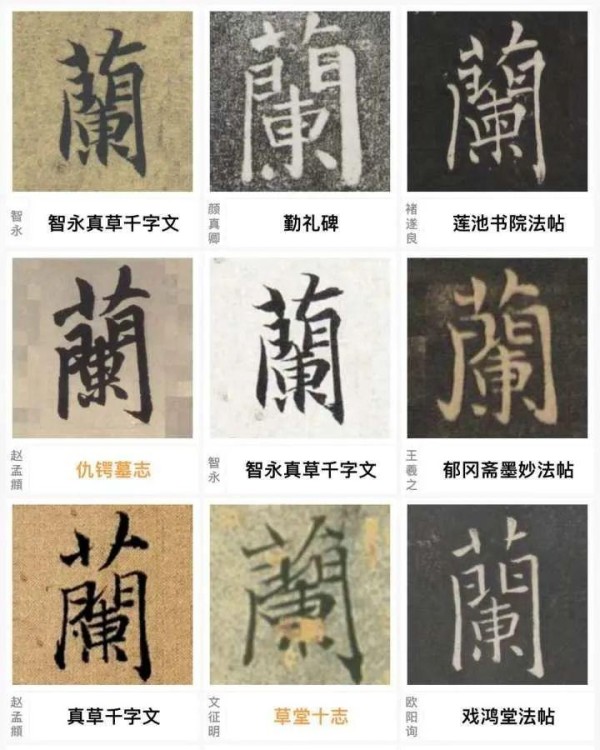 蘭
蘭
蘭
智永
智永真草千字文
颜真卿
勤礼碑
褚遂良
莲池书院法帖
蘭
蘭
蘭
赵孟頫
仇锷墓志
智永
智永真草千字文
王羲之
郁冈斋墨妙法帖
蘭
蘭
蘭
赵孟頫
真草千字文
文征明
草堂十志
欧阳询
戏鸿堂法帖